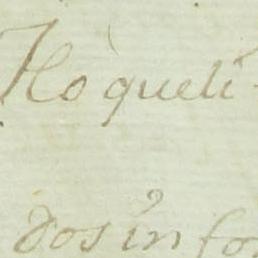 Hò queli
dos in for